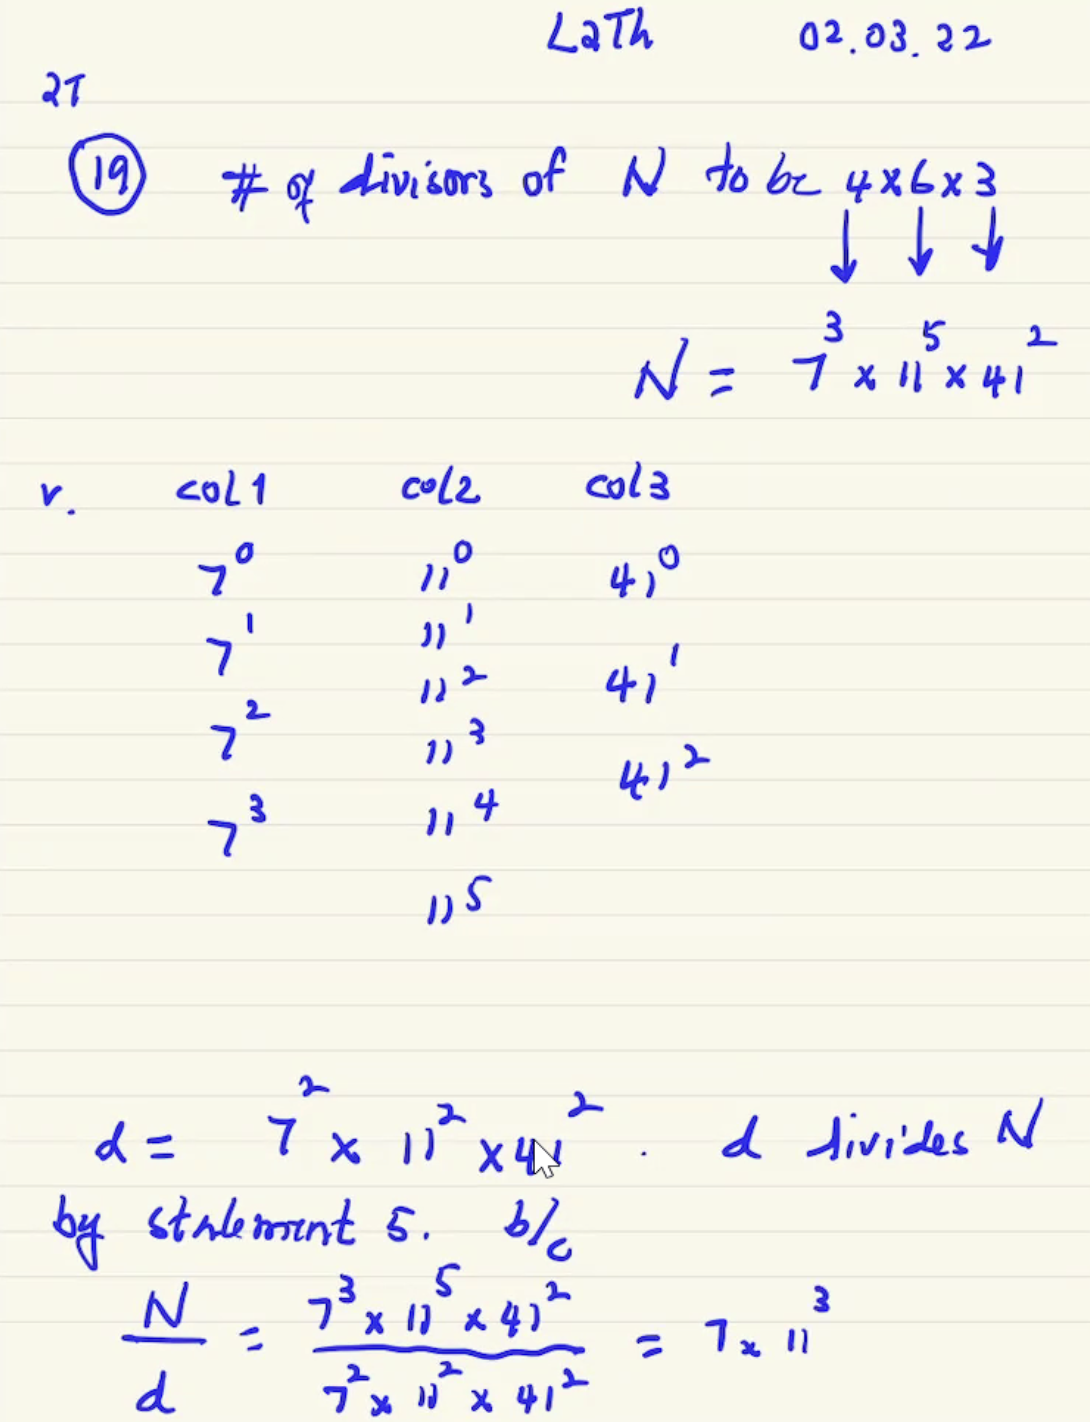 L2Th 02.03.22
2T
19 # of divisors of N to be 4×6×3
N = 7³ × 11⁵ × 41²
v. col1 col2 col3
7⁰ 11⁰ 41⁰
7¹ 11¹ 41¹
7² 11² 41²
7³ 11³
11⁴
11⁵
d = 7² × 11² × 41² . d divides N
by statement 5. b/c
N/d = 7³ × 11⁵ × 41² / 7² × 11² × 41² = 7 × 11³